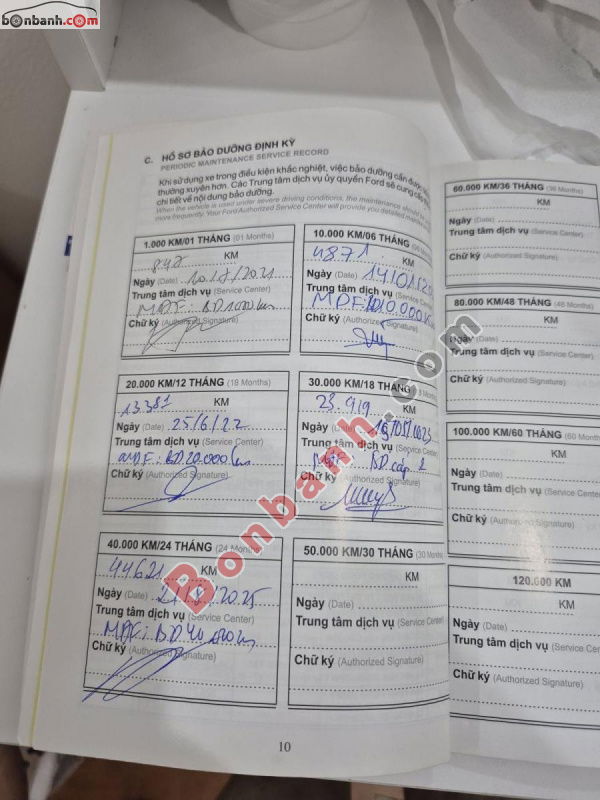 bonbanh.com
C. HỒ SƠ BẢO DƯỠNG ĐỊNH KỲ
PERIODIC MAINTENANCE SERVICE RECORD
Khi sử dụng xe trong điều kiện khắc nghiệt, việc bảo dưỡng cần được
thường xuyên hơn. Các Trung tâm dịch vụ ủy quyền Ford sẽ cung cấp
chi tiết về nội dung bảo dưỡng.
When the vehicle is used under severe driving conditions, the maintenance should be
more frequently. Your Ford Authorized Service Center will provide you detailed
1.000 KM/01 THÁNG (01 Months)
KM
Ngày (Date)
Trung tâm dịch vụ (Service Center)
MDF: BD1000 km
Chữ ký (Authorized Signature)
10.000 KM/06 THÁNG
4871 KM
Ngày (Date)
Trung tâm dịch vụ (Service Center)
MDF: BD10.000 Km
Chữ ký (Authorized Signature)
20.000 KM/12 THÁNG (18 Months)
13.381 KM
Ngày (Date) 25/6/22
Trung tâm dịch vụ (Service Center)
MDF: BD20.000 km
Chữ ký (Authorized Signature)
30.000 KM/18 THÁNG
23.919 KM
Ngày (Date)
Trung tâm dịch vụ (Service Center)
MDF: BD cấp 2
Chữ ký (Authorized Signature)
40.000 KM/24 THÁNG (24 Months)
44621 KM
Ngày (Date)
Trung tâm dịch vụ (Service Center)
MDF: BD40.000km
Chữ ký (Authorized Signature)
50.000 KM/30 THÁNG (30 Months)
KM
Ngày (Date)
Trung tâm dịch vụ (Service Center)
Chữ ký (Authorized Signature)
10
60.000 KM/36 THÁNG (36 Months)
KM
Ngày (Date)
Trung tâm dịch vụ (Service Center)
Chữ ký (Authorized Signature)
80.000 KM/48 THÁNG (48 Months)
KM
Ngày (Date)
Trung tâm dịch vụ (Service Center)
Chữ ký (Authorized Signature)
100.000 KM/60 THÁNG (60 Months)
KM
Ngày (Date)
Trung tâm dịch vụ (Service
Chữ ký (Authorized Signature)
120.000 KM
KM
Ngày (Date)
Trung tâm dịch vụ (Service Cen
Chữ ký (Authorized Signature)
Bonbanh.com